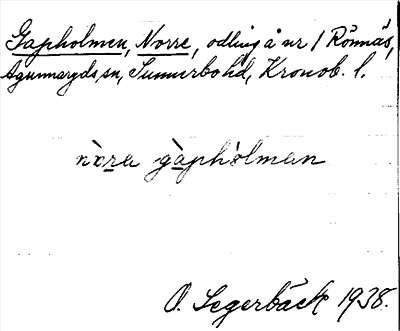 Gapholmen, Norre, odling å nr 1 Rönnäs,
Agunnaryds sn, Sunnerbo hd, Kronob. l.
nòra gàphòlman
O. Segerbäck 1938.